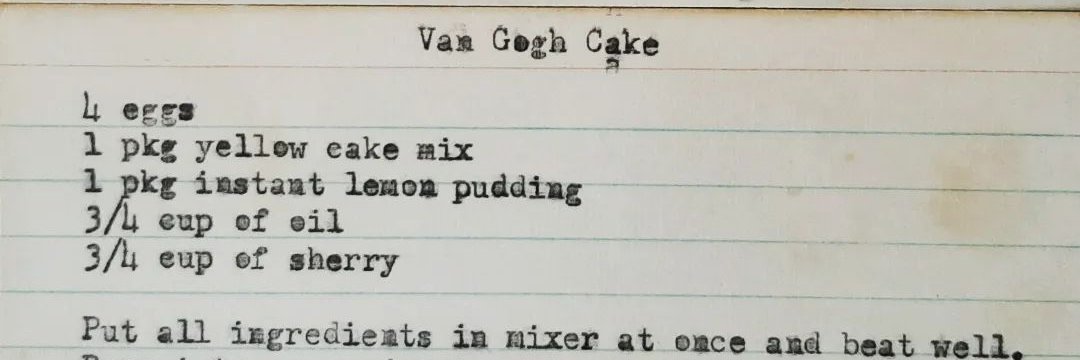 Van Gogh Cake
4 eggs
1 pkg yellow cake mix
1 pkg instant lemon pudding
3/4 cup of oil
3/4 cup of sherry
Put all ingredients in mixer at once and beat well.